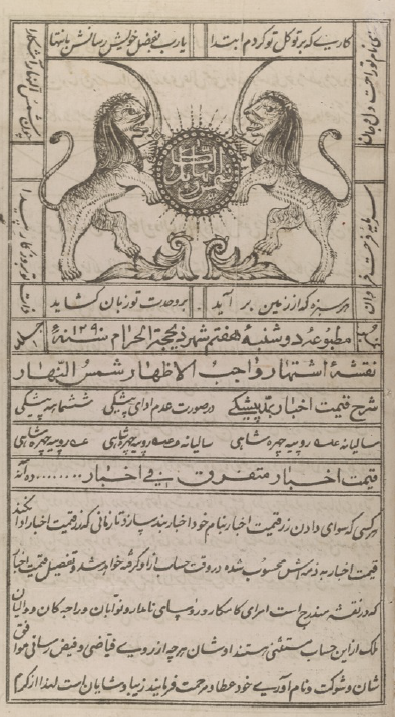 کاریکه بر توکل تو کردم ابتدا یارب بفضل خویش رسانش بانتها
ای نام تو راحت دل و جان
سرمایهٔ فرحت فراوان
شمس النهار
هر سبزه که از زمین بر آید بر وحدت تو زبان کشاید
مطبوعهٔ دوشنبه هفتم شهر ذیحجة الحرام سنهٔ ۱۲۹۰
نقشهٔ اشتهار واجب الاظهار شمس النهار
شرح قیمت اخبار پیشکی در صورت عدم ادای پیشکی ششماهه پیشکی
سالیانه روپیه چهره شاهی سالیانه روپیه چهره شاهی روپیه چهره شاهی
قیمت اخبار متفرق فی اخبار........ده آنه
هر کسی که سوای دادن زر قیمت اخبار بنام خود اخبار بند سازد تا زمانی که زر قیمت اخبار ادا نکند
قیمت اخبار به ذمه اش محسوب شده در وقت حساب از او گرفته خواهد شد و تفصیل قیمت اخبار
که در نقشه مندرج است امرای کامکار و روسای نامدار و نوابان و راجه کان و والیان
ملک از این حساب مستثنی هستند اوشان هر چه از روی فیاضی و فیض رسانی موافق
شان و شوکت و نام آوری خود عطا و مرحمت فرمایند زیبا و شایان است لهذا از کرم